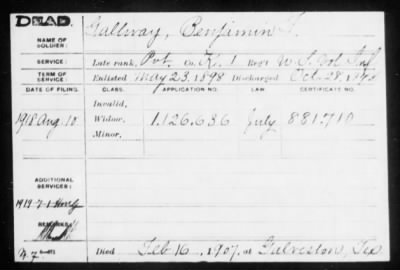 DEAD.
NAME OF SOLDIER: Gallway, Benjamin F.
SERVICE: Late rank, Pvt. Co. K, 1 Reg't U.S. Vol. Inf.
TERM OF SERVICE: Enlisted May 23, 1898 Discharged Oct. 28, 1898
DATE OF FILING. CLASS. APPLICATION NO. LAW CERTIFICATE NO.
Invalid,
1918 Aug. 10. Widow, 1.126.636 July 881.710
Minor,
ADDITIONAL SERVICES:
1919 7-1
REMARKS:
Died Feb 16, 1907, at Galveston, Tex